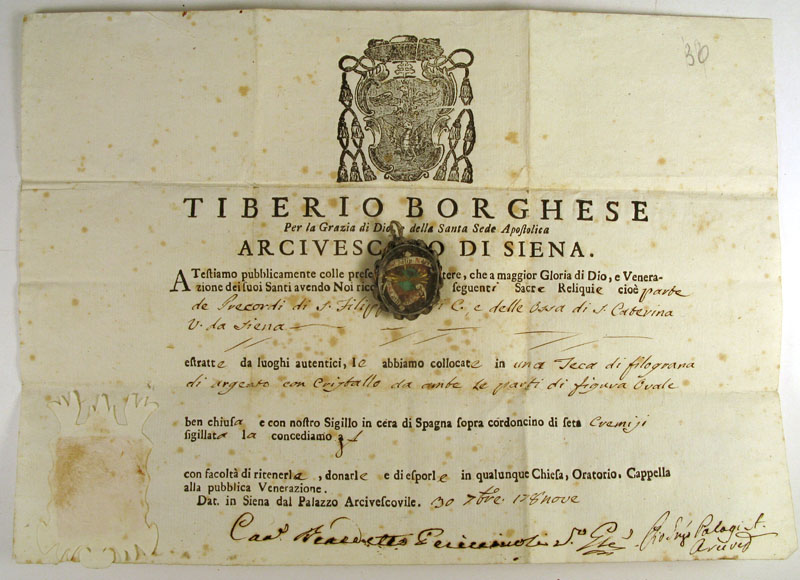 30
TIBERIO BORGHESE
Per la Grazia di Dio, e della Santa Sede Apostolica
ARCIVESCOVO DI SIENA.
ATestiamo pubblicamente colle prese tere, che a maggior Gloria di Dio, e Venera-
zione dei suoi Santi avendo Noi rico seguenti Sacre Reliquie cioè parte
de Precordi di S. Filipp C. e delle Ossa di S. Caterina
V. da Siena
estratte da luoghi autentici, le abbiamo collocate in una Teca di filograna
di argento con Cristallo da ambe le parti di figura Ovale
ben chiusa e con nostro Sigillo in cera di Spagna sopra cordoncino di seta Cremisi
sigillata la concediamo
con facoltà di ritenerle, donarle e di esporle in qualunque Chiesa, Oratorio, Cappella
alla pubblica Venerazione.
Dat. in Siena dal Palazzo Arcivescovile. 30 7bre. 178nove
Can.